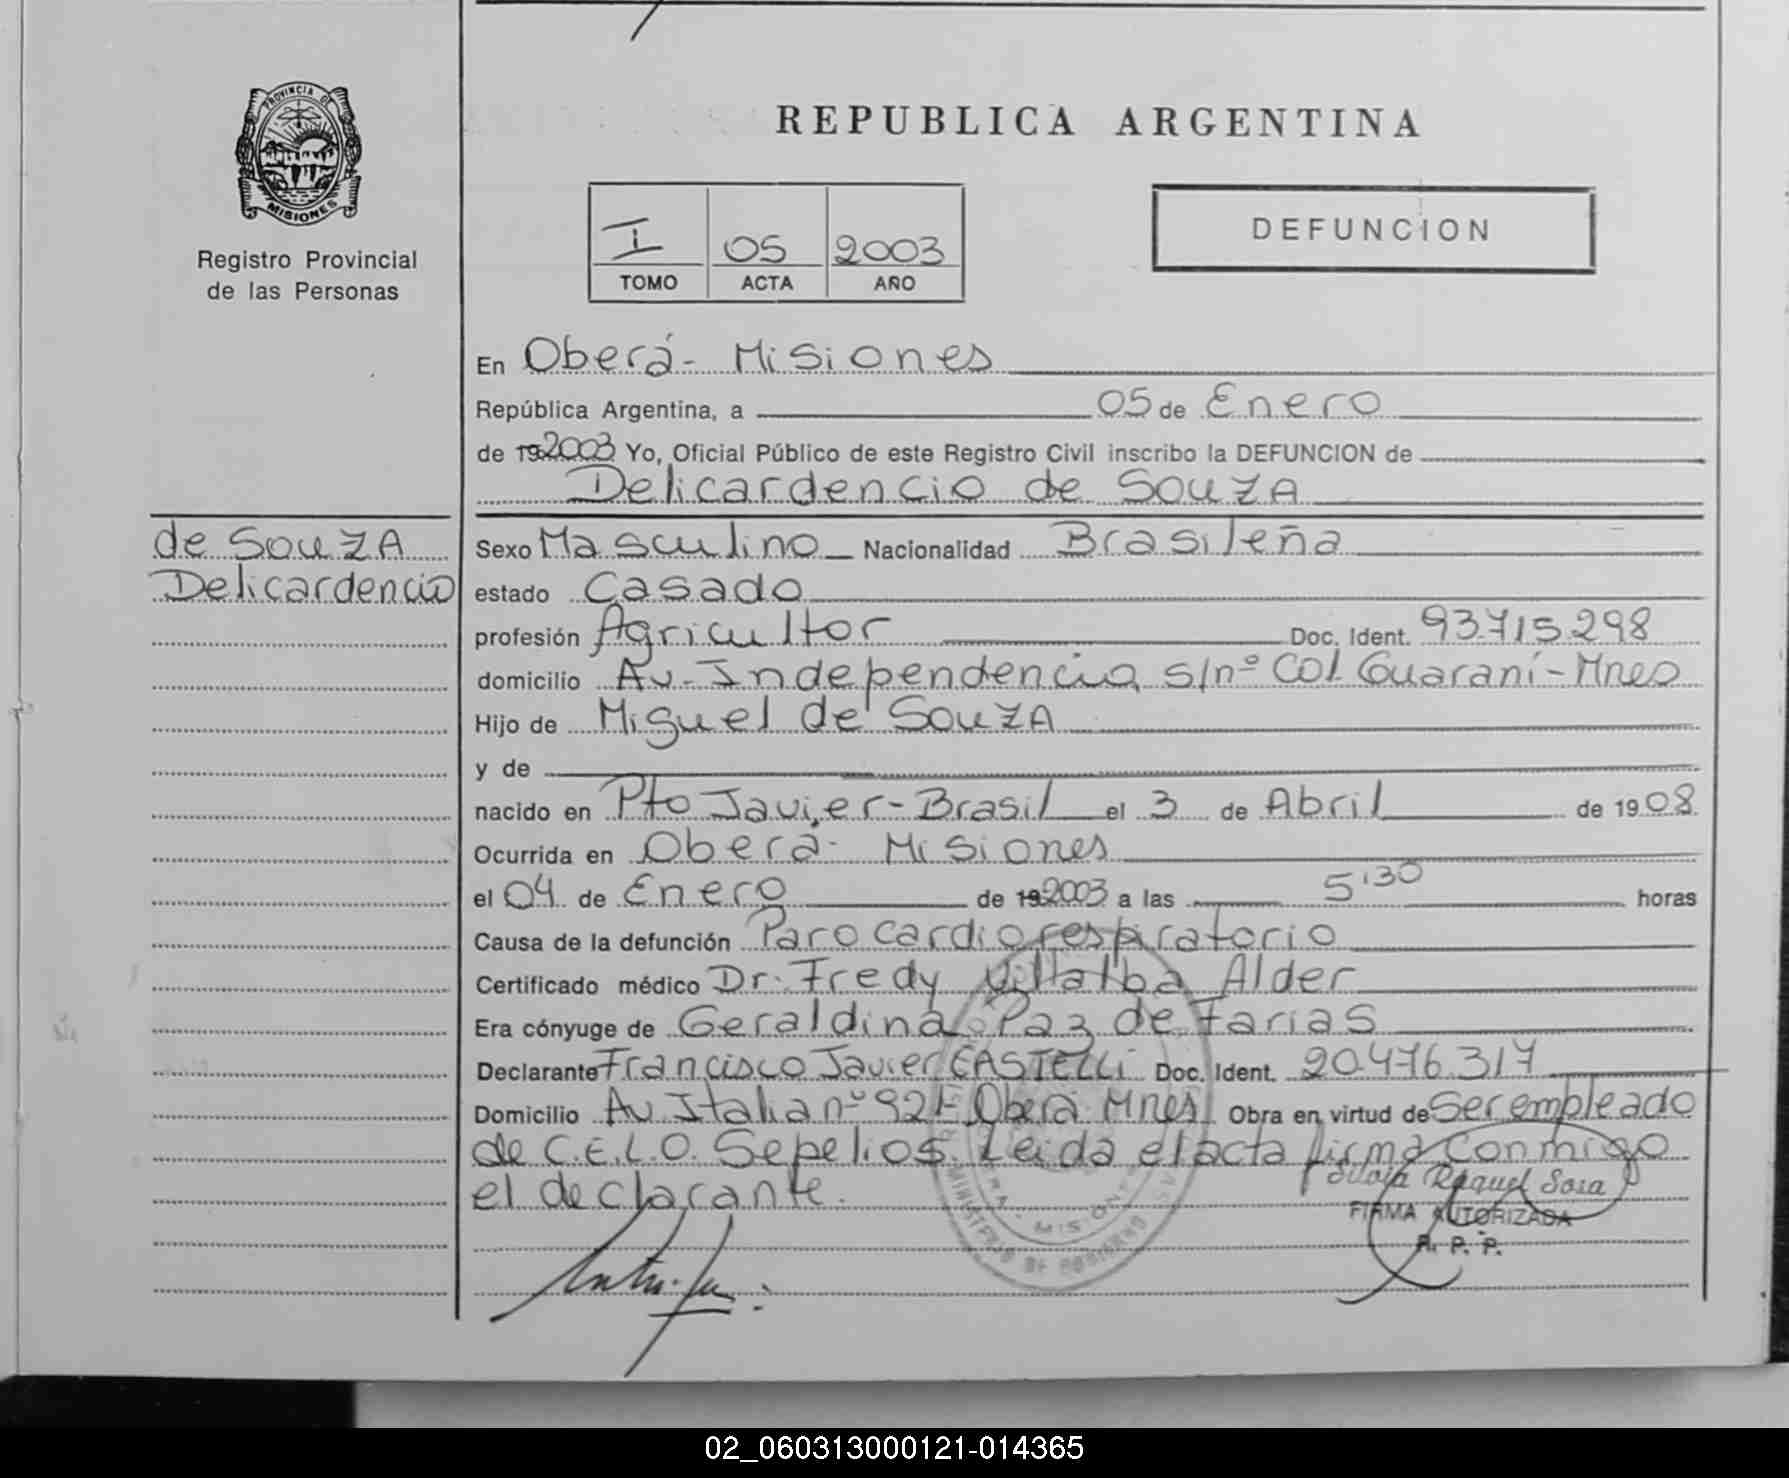 PROVINCIA DE
MISIONES
Registro Provincial
de las Personas
REPUBLICA ARGENTINA
I 05 2003
TOMO ACTA AÑO
DEFUNCION
En Oberá - Misiones
República Argentina, a 05 de Enero
de 192003 Yo, Oficial Público de este Registro Civil inscribo la DEFUNCION de
Delicardencio de SouzA
de SouzA
Delicardencio
Sexo Masculino Nacionalidad Brasileña
estado Casado
profesión Agricultor Doc. Ident. 93.715.298
domicilio Av. Independencia s/nº Col. Guaraní - Mnes
Hijo de Miguel de SouzA
y de
nacido en Pto Javier - Brasil el 3 de Abril de 1908
Ocurrida en Oberá - Misiones
el 04 de Enero de 192003 a las 5'30 horas
Causa de la defunción Paro cardiorespiratorio
Certificado médico Dr. Fredy Villalba Alder
Era cónyuge de Geraldina Paz de Farias
Declarante Francisco Javier CASTELLi Doc. Ident. 20.476.317
Domicilio Av. Italia nº 921 - Oberá Mnes Obra en virtud de Ser empleado
de C.E.L.O. Sepelios. Leida el acta firma conmigo
el declarante.
Raquel Sosa
FIRMA AUTORIZADA
R. P. P.
MISIONES
MINISTERIO DE GOBIERNO
02_060313000121-014365